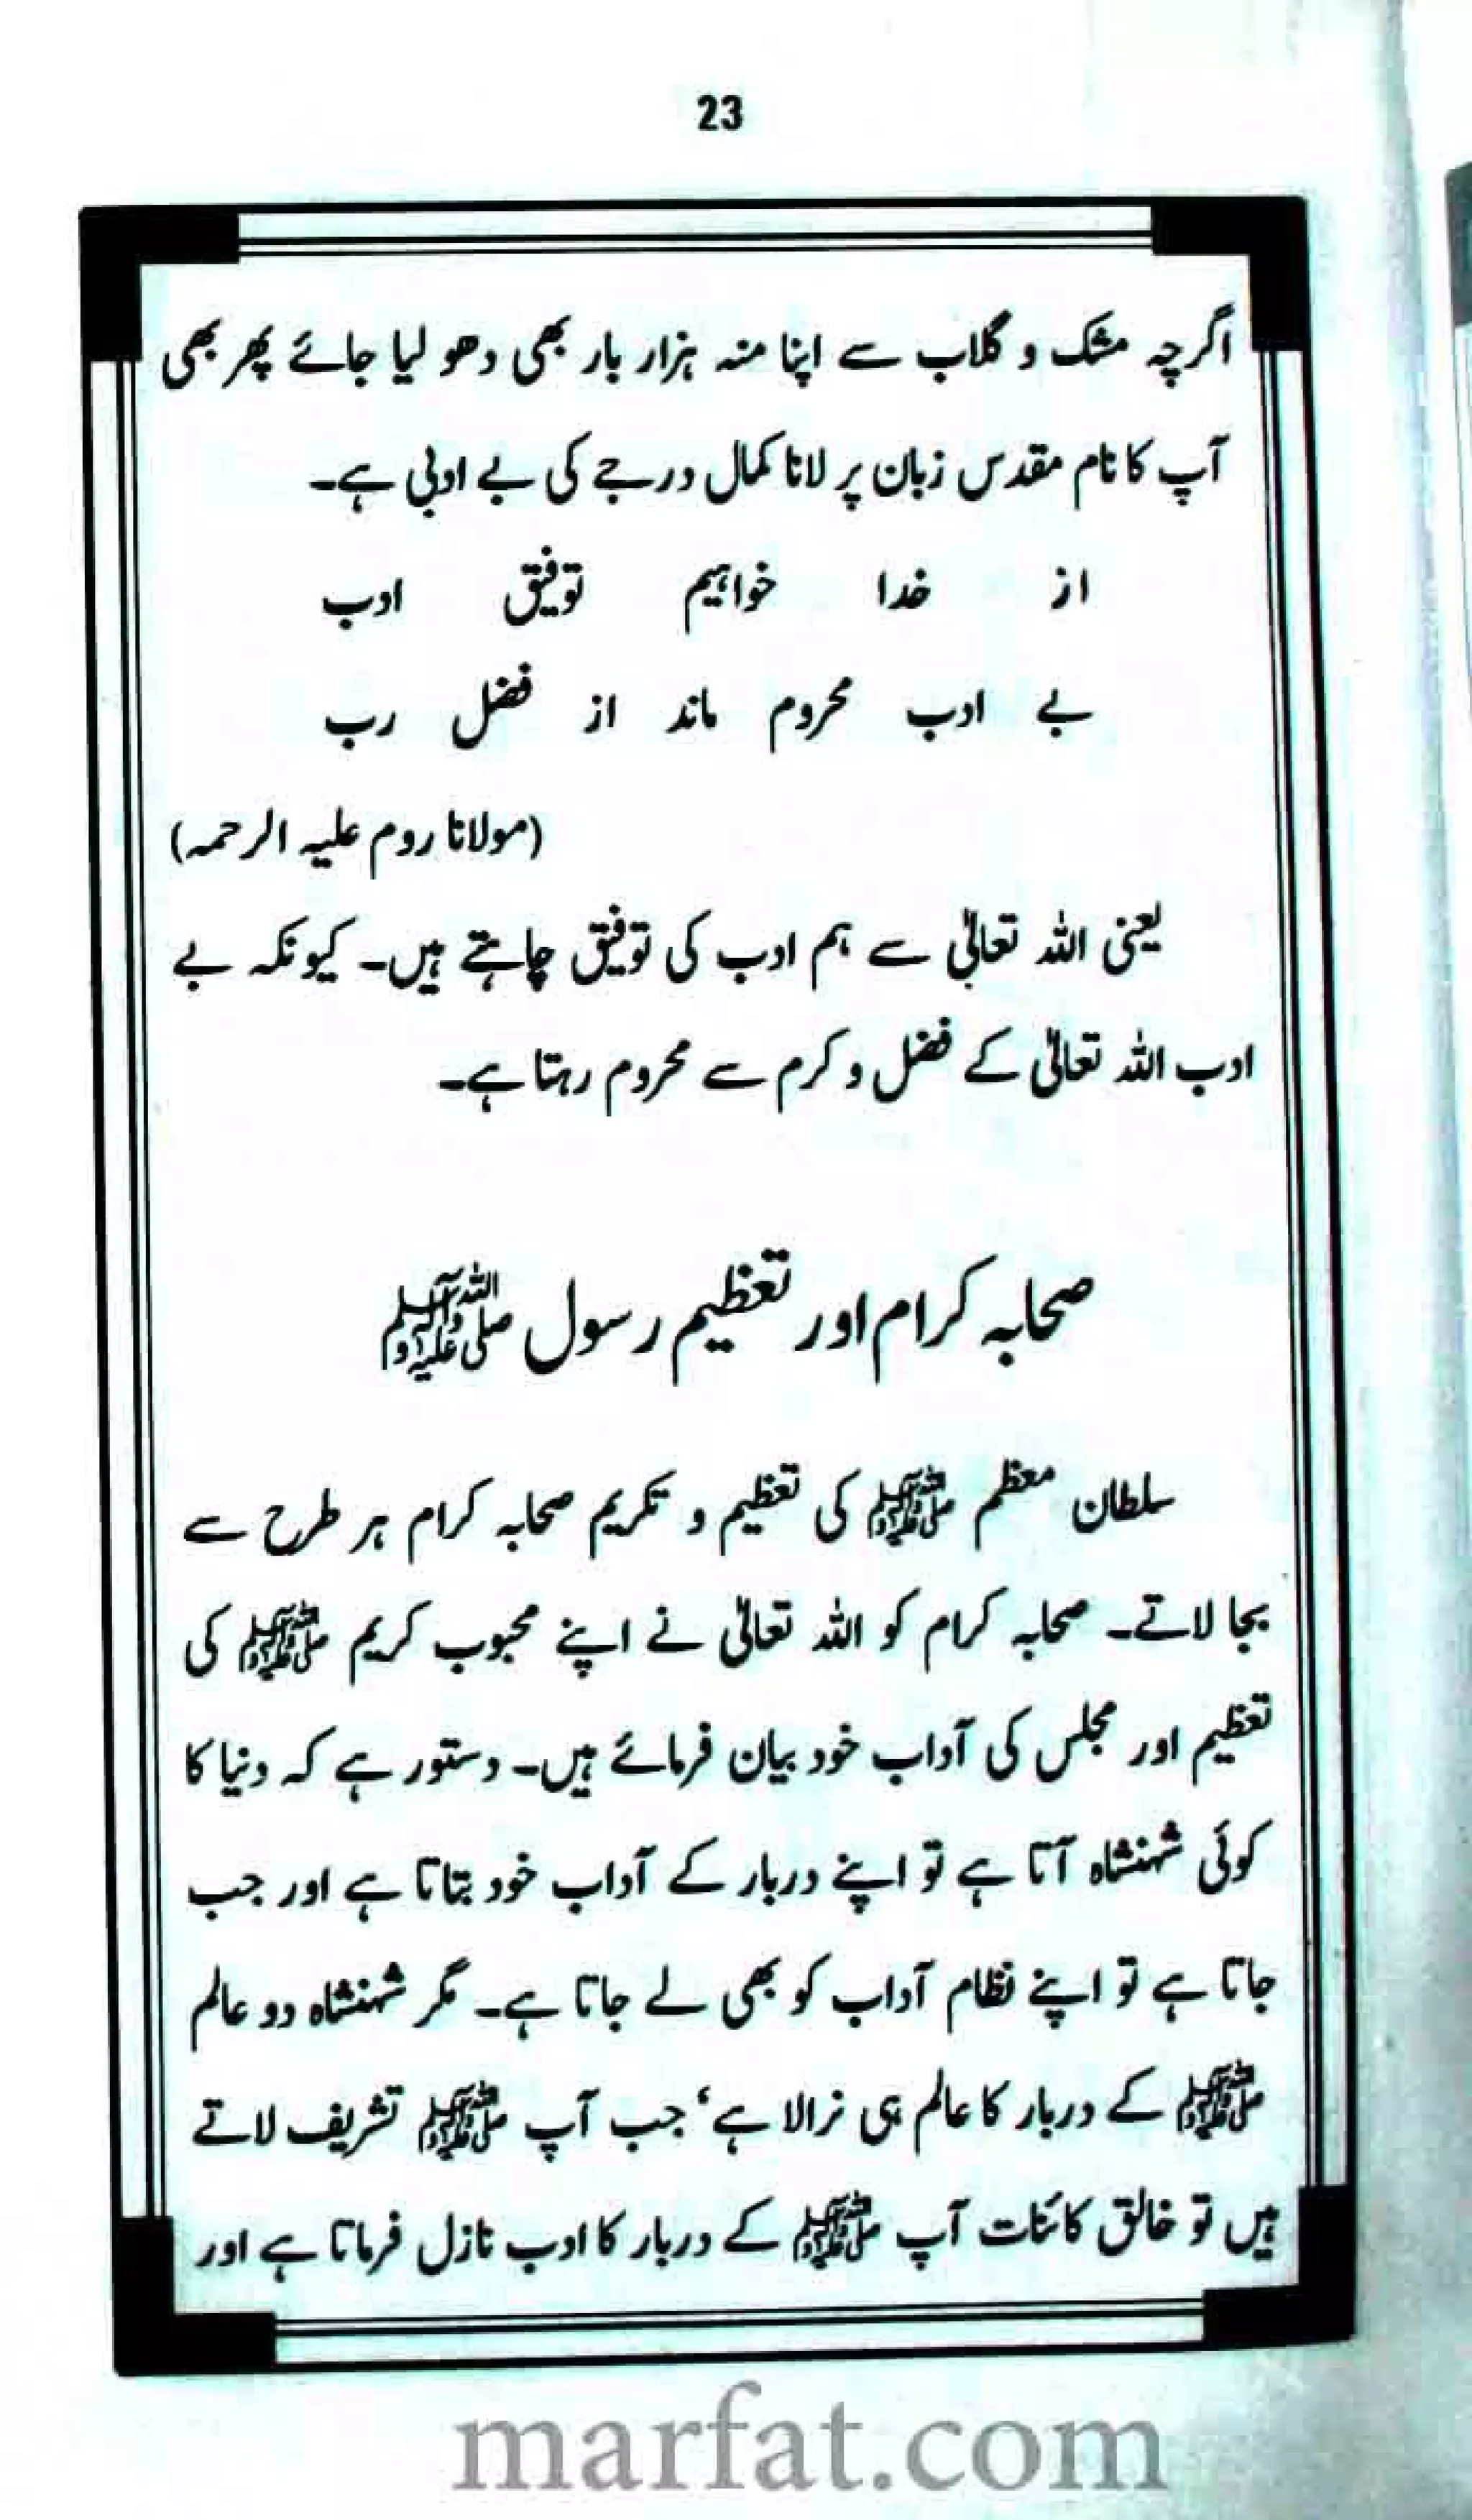 23
اگرچہ مشک و گلاب سے اپنا منہ ہزار بار بھی دھو لیا جائے پھر بھی
آپ کا نام مقدس زبان پر لانا کمال درجے کی بے ادبی ہے۔
از خدا خواہیم توفیق ادب
بے ادب محروم ماند از فضل رب
(مولانا روم علیہ الرحمہ)
یعنی اللہ تعالیٰ سے ہم ادب کی توفیق چاہتے ہیں۔ کیونکہ بے
ادب اللہ تعالیٰ کے فضل و کرم سے محروم رہتا ہے۔
صحابہ کرام اور تعظیم رسول ﷺ
سلطان معظم ﷺ کی تعظیم و تکریم صحابہ کرام ہر طرح سے
بجا لاتے۔ صحابہ کرام کو اللہ تعالیٰ نے اپنے محبوب کریم ﷺ کی
تعظیم اور مجلس کی آداب خود بیان فرمائے ہیں۔ دستور ہے کہ دنیا کا
کوئی شہنشاہ آتا ہے تو اپنے دربار کے آداب خود بتاتا ہے اور جب
جاتا ہے تو اپنے نظام آداب کو بھی لے جاتا ہے۔ مگر شہنشاہ دو عالم
ﷺ کے دربار کا عالم ہی نرالا ہے‘ جب آپ ﷺ تشریف لاتے
ہیں تو خالق کائنات آپ ﷺ کے دربار کا ادب نازل فرماتا ہے اور
marfat.com